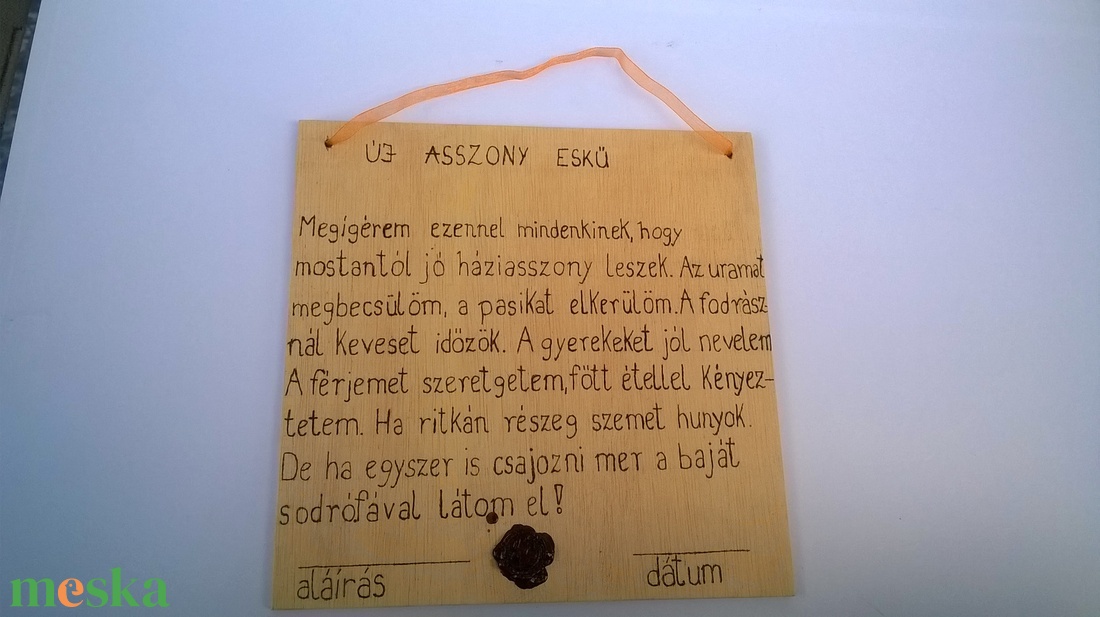 ÚJ ASSZONY ESKÜ
Megígérem ezennel mindenkinek, hogy
mostantól jó háziasszony leszek. Az uramat
megbecsülöm, a pasikat elkerülöm. A fodrász-
nál keveset időzök. A gyerekeket jól nevelem
A férjemet szeretgetem, főtt étellel kényez-
tetem. Ha ritkán részeg szemet hunyok.
De ha egyszer is csajozni mer a baját
sodrófával látom el!
aláírás dátum
meska